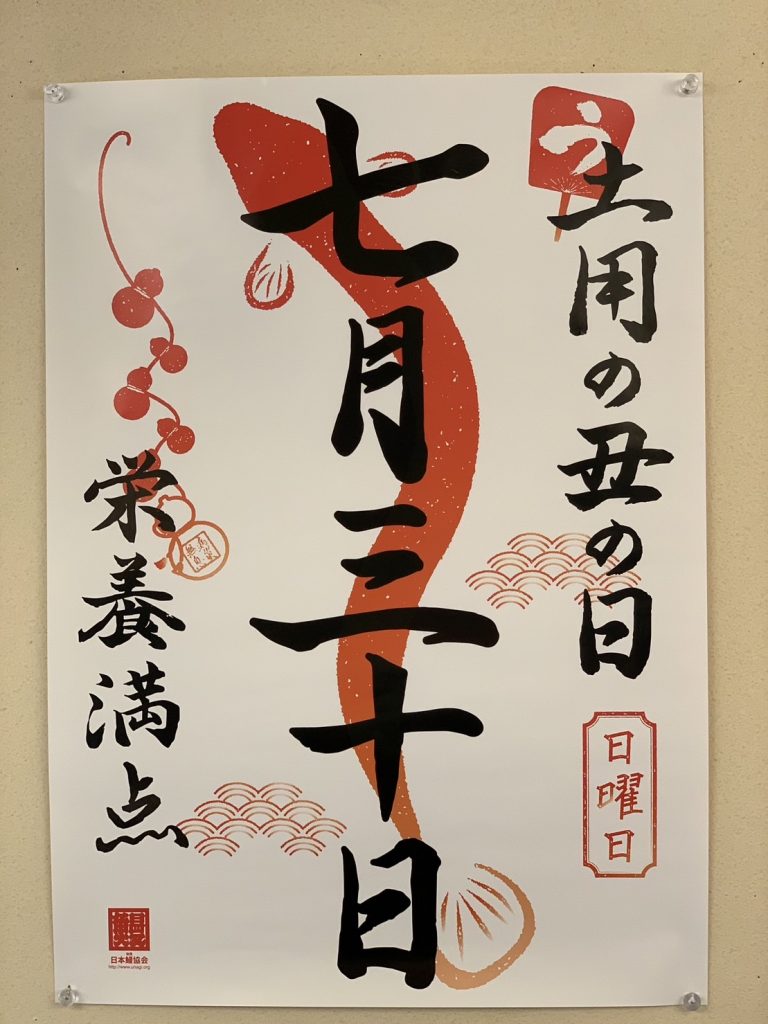 う
土用の丑の日
日曜日
七月三十日
栄養満点
日本鰻協会
http://www.unagi.org